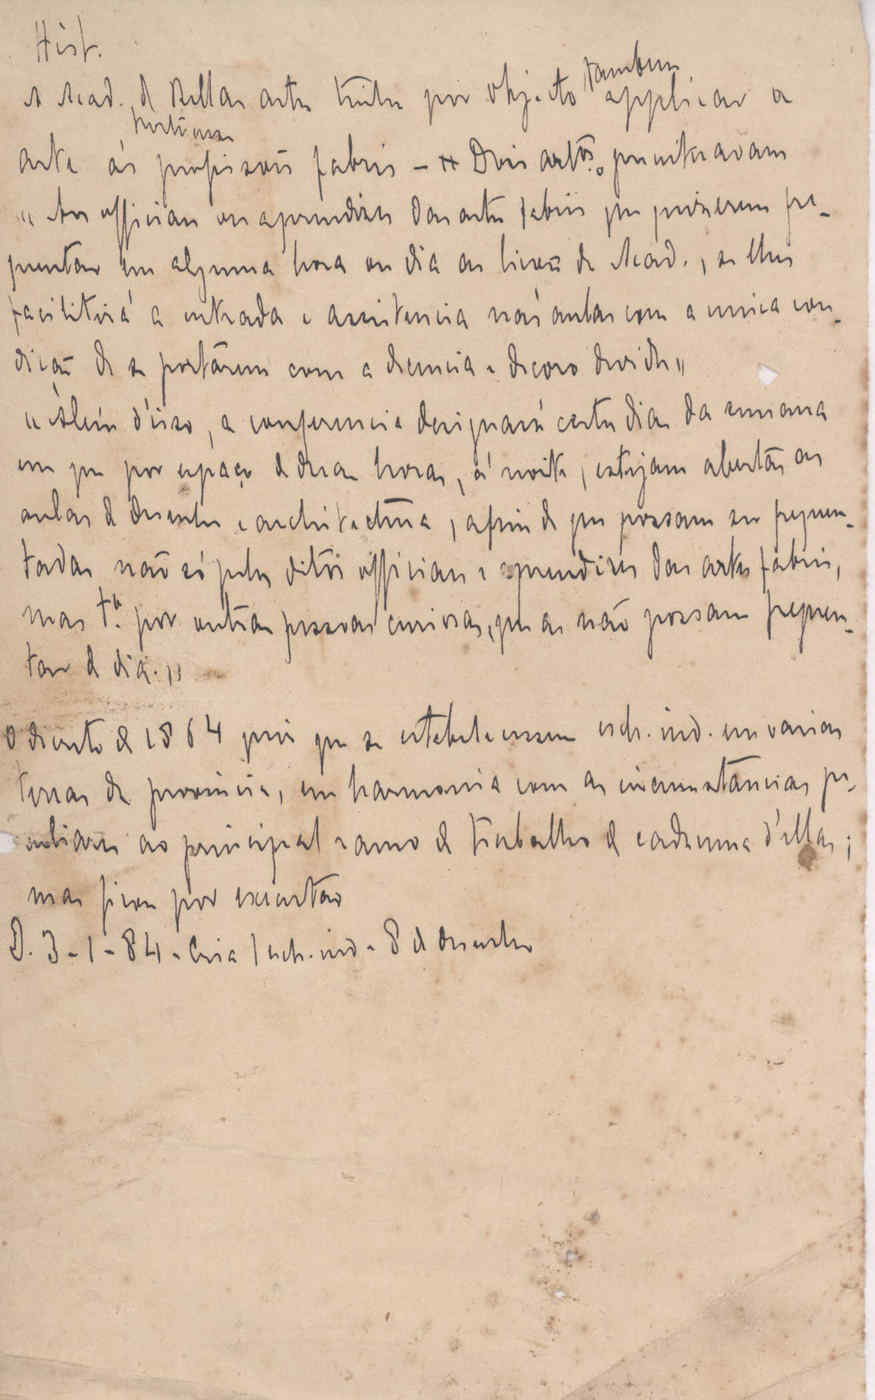 Hist.
A Acad. de Bellas artes tinha por objecto tambem applicar a
arte ás profissões fabris – Dois artos.
"Aos officiaes ou aprendizes das artes fabris que quizerem fre-
quentar em alguma hora ou dia as licoes da Acad., se lhes
facilitará a entrada e assistencia nas aulas com a unica con-
dição de se portarem com a decencia e decoro devido"
"Além d'isso, a conferencia designará certos dias da semana
em que por espaço de duas horas, á noite, estejam abertas as
aulas de desenho e architectura, afim de que possam ser frequen-
tadas não só pelos ditos officiaes e aprendizes das artes fabris,
mas tb. por outras pessoas curiosas, que as não possam frequen-
tar de dia."
O decreto de 1864 quiz que se estabelecessem esch. ind. em varias
terras da provincia, em harmonia com as circumstancias pe-
culiares ao principal ramo de trabalho de cada uma d'ellas;
mas ficou por executar
D. 3-1-84 - Cria 1 esch. ind. e 8 de desenho